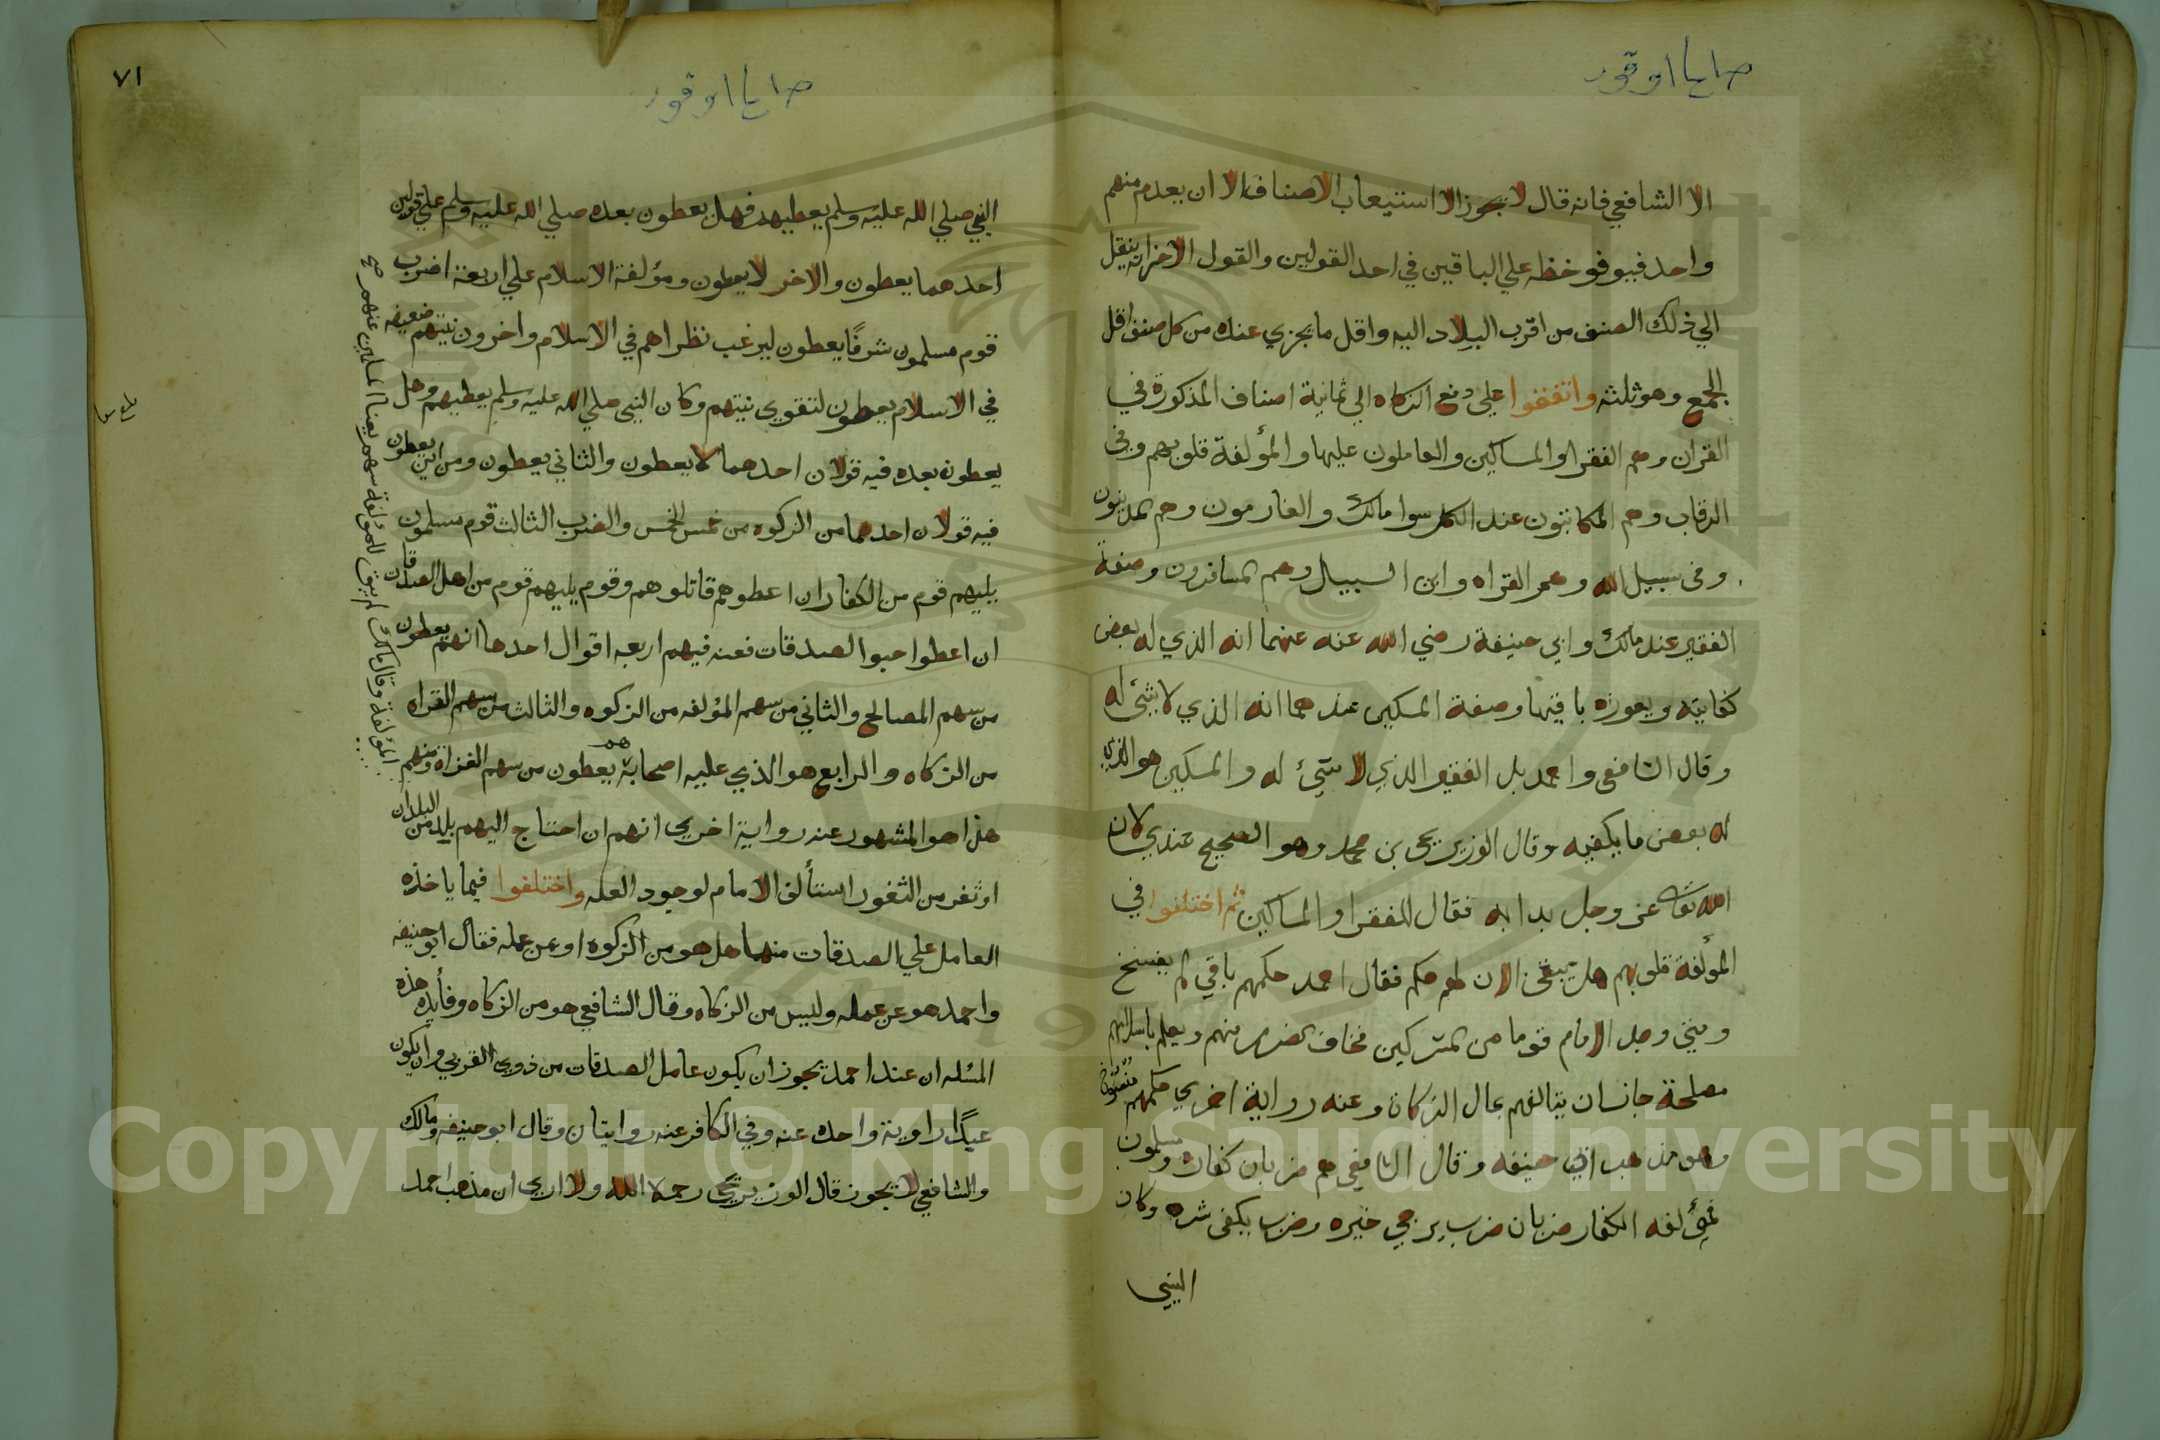 الا الشافعي فانه قال لا يجوز الا استيعاب الاصناف الا ان يعدم منهم
واحد فيوفو خظه علي الباقين في احد القولين والقول الاخر انه ينقل
الي ذلك الصنف من اقرب البلاد اليه واقل ما يجزي عنده من كل صنف اقل
الجمع وهو ثلثه واتفقوا علي دفع الزكاه الي ثمانية اصناف المذكورة في
القران وهم الفقرا والمساكين والعاملون عليها والمؤلفة قلوبهم وفي
الرقاب وهم المكاتبون عند الكل سوا مالك والغارمون وهم المدينون
وفي سبيل الله وهم الغزاه وابن السبيل وهم المسافرون وصفة
الفقير عند مالك وابي حنيفة رضي الله عنه عنهما انه الذي له بعض
كفايته ويعوزه باقيها وصفة المسكين عندهما انه الذي لا شئ له
وقال الشافعي واحمد بل الفقير الذي لا شئ له والمسكين هو الذي
له بعض ما يكفيه وقال الوزير يحي بن محمد وهو الصحيح عندي لان
الله تعالى عز وجل بدا به فقال للفقرا والمساكين ثم اختلفوا في
المؤلفة قلوبهم هل يبقي الان لهم حكم فقال احمد حكمهم باقي لم ينسخ
ومتي وجد الامام قوما من المشركين فخاف الضرر منهم وبعلم باسلامهم
مصلحة جاز ان يتالفهم بمال الزكاة وعنه رواية اخري حكمهم
وهو مذهب ابي حنيفه وقال الشافعي هم ضربان كفار ومسلمون
فمؤلفه الكفار ضربان ضرب يرجي خيره وضرب يكفي شره وكان
النبي
٧١
النبي صلي الله عليه وسلم يعطيهم فهل يعطون بعده صلي الله عليه وسلم علي قولين
احدهما يعطون والاخر لا يعطون ومؤلفة الاسلام علي اربعة اضرب
قوم مسلمون شرفا يعطون ليرغب نظراهم في الاسلام واخرون نيتهم ضعيفه
في الاسلام يعطون لتقوي نيتهم وكان النبي صلي الله عليه وسلم يعطيهم وهل
يعطون بعده فيه قولان احدهما لا يعطون والثاني يعطون ومن اين يعطون
فيه قولان احدهما من الزكوه من خمس الخمس والضرب الثالث قوم مسلمون
يليهم قوم من الكفار ان اعطوهم قاتلوهم وقوم يليهم قوم من اهل الصدقات
ان اعطوا جبوا الصدقات فعنه فيهم اربعه اقوال احدها انهم يعطون
من سهم المصالح والثاني من سهم المؤلفه من الزكوه والثالث من سهم الغزاه
من الزكاه والرابع هو الذي عليه اصحابه هم يعطون من سهم الغزاة ومنهم
هذا هو المشهور عنه رواية اخري انهم ان احتاج اليهم بلد من البلدان
او ثغر من الثغور استألف الامام لوجود العله واختلفوا فيما ياخذه
العامل علي الصدقات منها هل هو من الزكوه او عن عمله فقال ابو حنيفه
واحمد هو عن عمله وليس من الزكاه وقال الشافعي هو من الزكاه وفائده هذه
المسله ان عند احمد يجوز ان يكون عامل الصدقات من ذوي القربي وان يكون
عبدا رواية واحده عنه وفي الكافر عنه روايتان وقال ابو حنيفه ومالك
والشافعي لا يجوز قال الوزير يحي رحمه الله ولا اري ان مذهب احمد
المؤلفة وقال مالك لم يبق للمؤلفة سهم لغنا المسلمين عنهم صح
Copyright © King Saud University